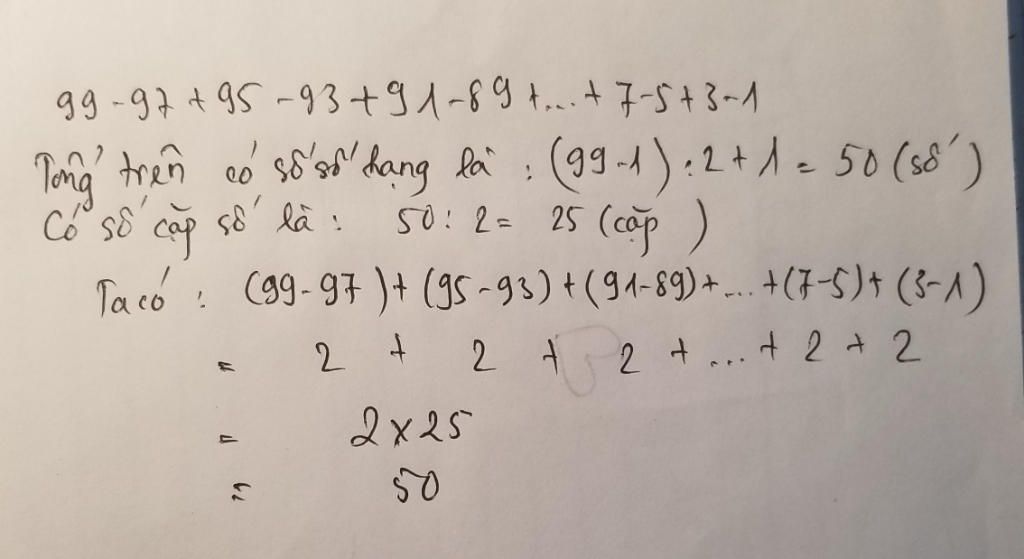 99 - 97 + 95 - 93 + 91 - 89 + ... + 7 - 5 + 3 - 1
Tổng trên có số số hạng là : (99 - 1) : 2 + 1 = 50 (số)
Có số cặp số là : 50 : 2 = 25 (cặp)
Ta có : (99 - 97) + (95 - 93) + (91 - 89) + ... + (7 - 5) + (3 - 1)
= 2 + 2 + 2 + ... + 2 + 2
= 2 x 25
= 50